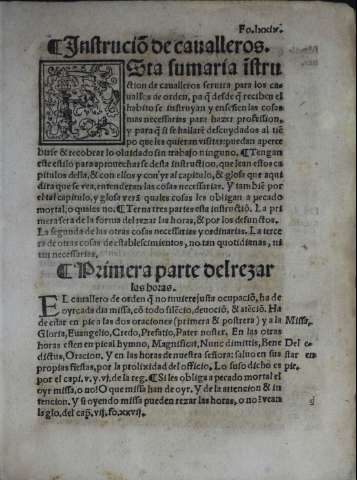 Fo.lxxiv.
¶Instruciõ de caualleros.
Sta sumaria ĩstru
ction de caualleros seruira para los ca-
ualleros de orden, pa q̃ desde q̃ reciben el
habito se instruyan y enseñen las cosas
mas necessarias para hazer profession,
y para q̃ si se hallarẽ descuydados al tiẽ
po que les quieran visitar: puedan aperce
birse & recobrar lo oluidado sin trabajo ninguno. ¶Tengan
este estilo para aprouecharse desta instruction, que lean estos ca
pitulos della, & con ellos y con'yr al capitulo, & glosa que aqui
dira que se vea, entenderan las cosas necessarias. Y tambiẽ por
el tal capitulo, y glosa verã quales cosas les obligan a pecado
mortal, o quales no. ¶Terna tres partes esta instructiõ. La pri
mera sera de la forma del rezar las horas, & por los defunctos.
La segunda de las otras cosas necessarias y ordinarias. La terce
ra de otras cosas de establescimientos, no tan quotidianas, ni
tan necessarias.
¶Primera parte del rezar
las horas.
EL cauallero de orden q̃ no tuuiere justa ocupaciõ, ha de
oyr cada dia missa, cõ todo silẽcio, deuociõ, & atẽciõ. Ha
de estar en pie a las dos oraciones (primera & postrera) y a la Missa,
Gloria, Euangelio, Credo, Prefatio, Pater noster. En las otras
horas esten en pie al hymno, Magnificat, Nunc dimittis, Bene Del e
dictus, Oracion. Y en las horas de nuestra señora: saluo en sus star en
propias fiestas, por la prolixidad del officio. Lo suso dicho es pie.
por el capi. v. y. vj. de la reg. ¶Si les obliga a pecado mortal el
oyr missa, o no? O que missa han de oyr. Y de la attencion & in
tencion. Y si oyendo missa pueden rezar las horas, o no? vean
la glo. del cap. vij. fo. xxvij.